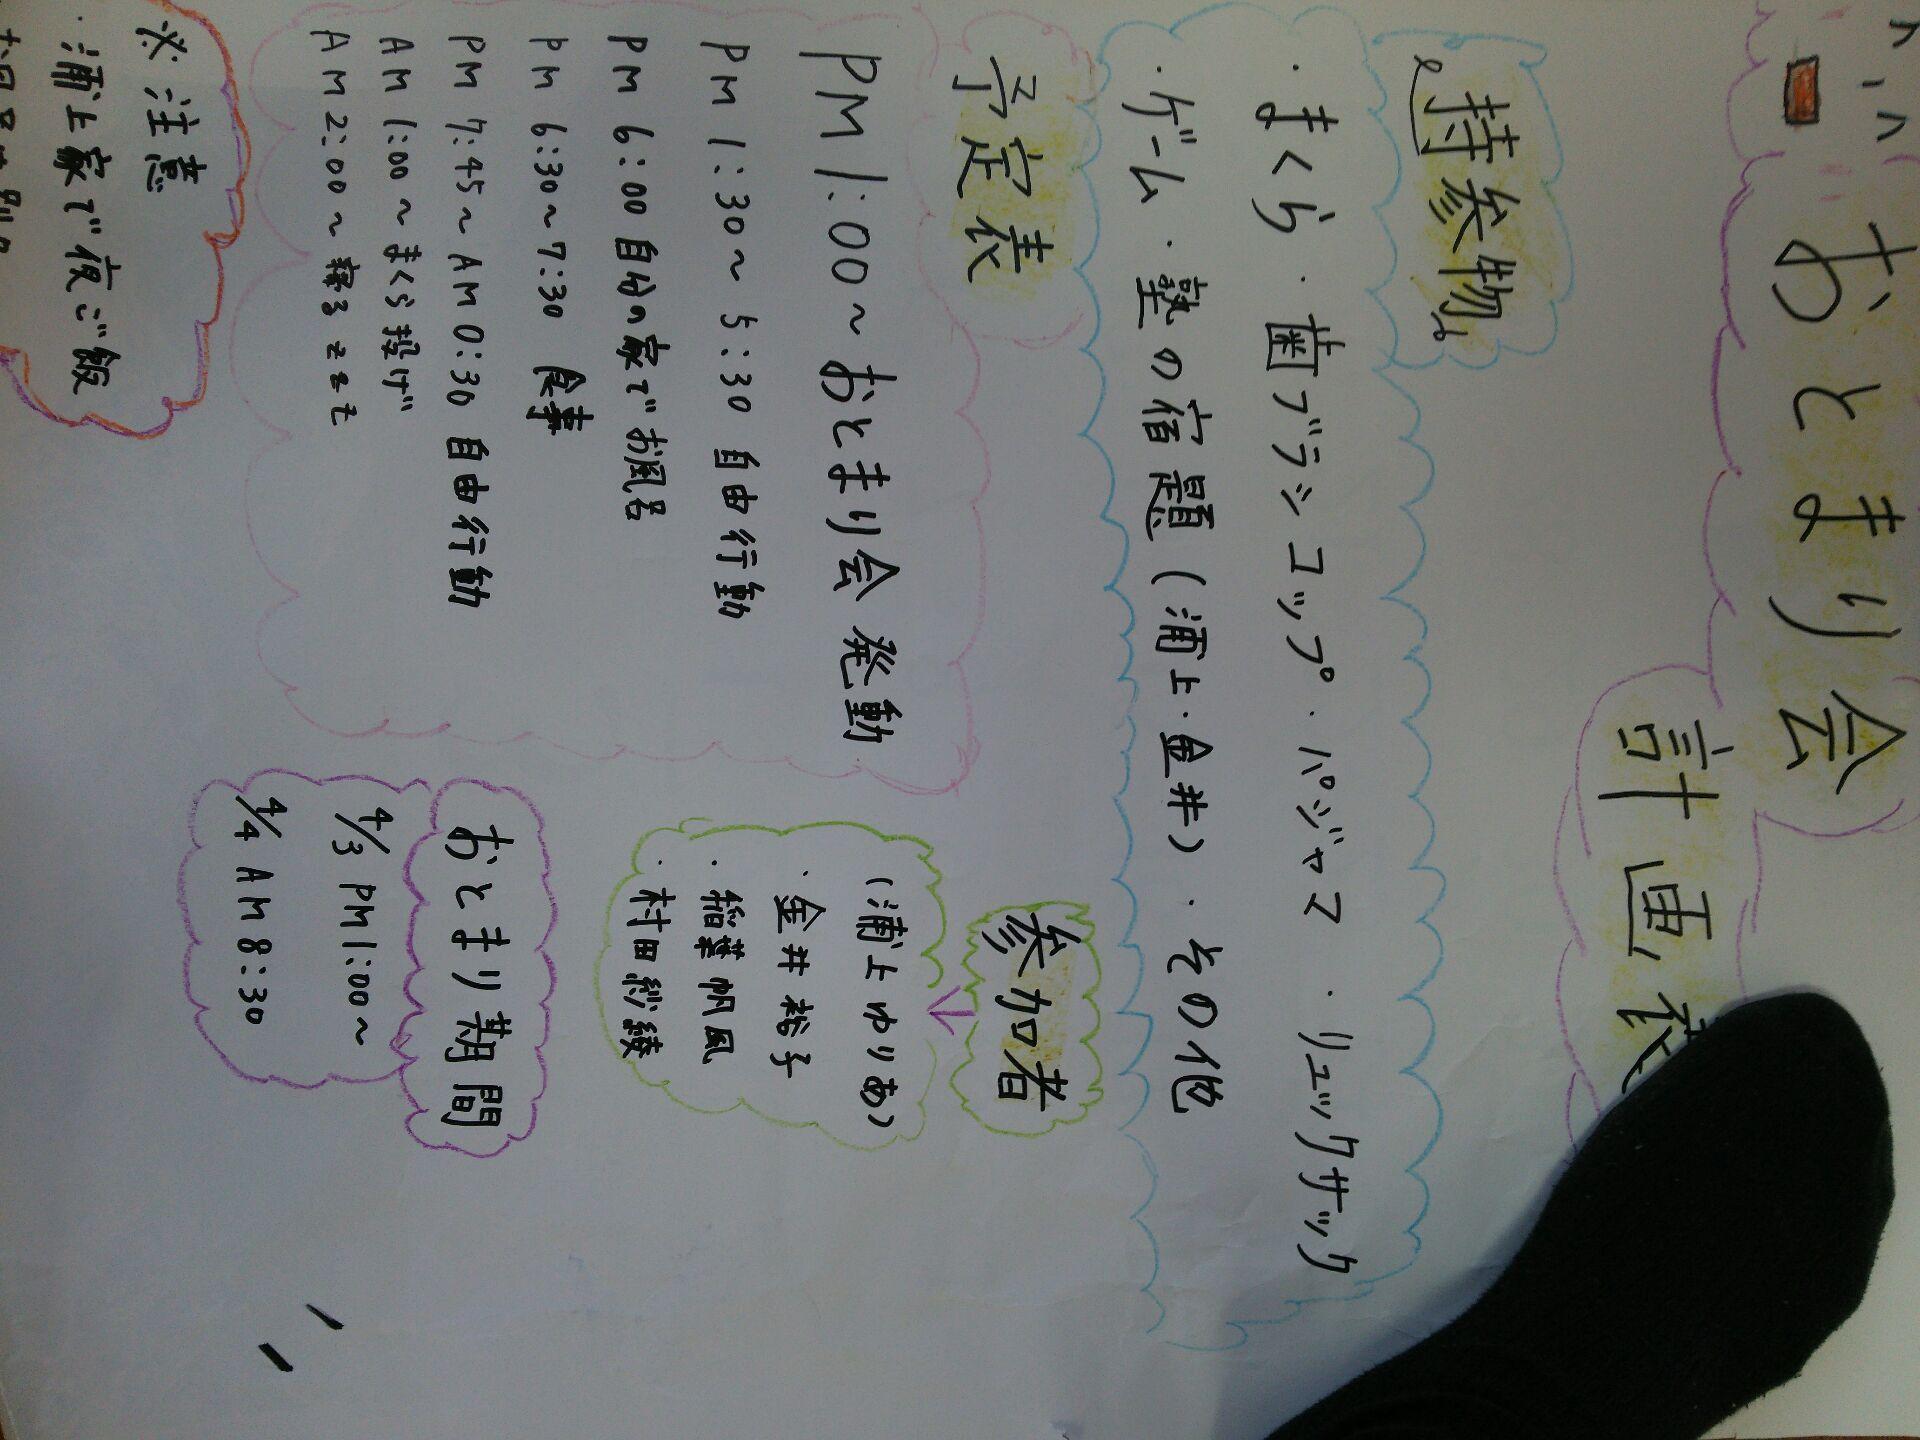 おとまり会
計画表
持参物
・まくら・歯ブラシコップ・パジャマ・リュックサック
・ゲーム・塾の宿題(浦上・金井)・その他
予定表
PM 1:00～おとまり会 発動
PM 1:30～5:30 自由行動
PM 6:00 自分の家でお風呂
PM 6:30～7:30 食事
PM 7:45～AM 0:30 自由行動
AM 1:00～まくら投げ
AM 2:00～寝る zzz
参加者
(浦上ゆりあ)
・金井裕子
・稲葉帆風
・村田紗綾
おとまり期間
4/3 PM 1:00～
4/4 AM 8:30
※注意
・浦上家で夜ご飯